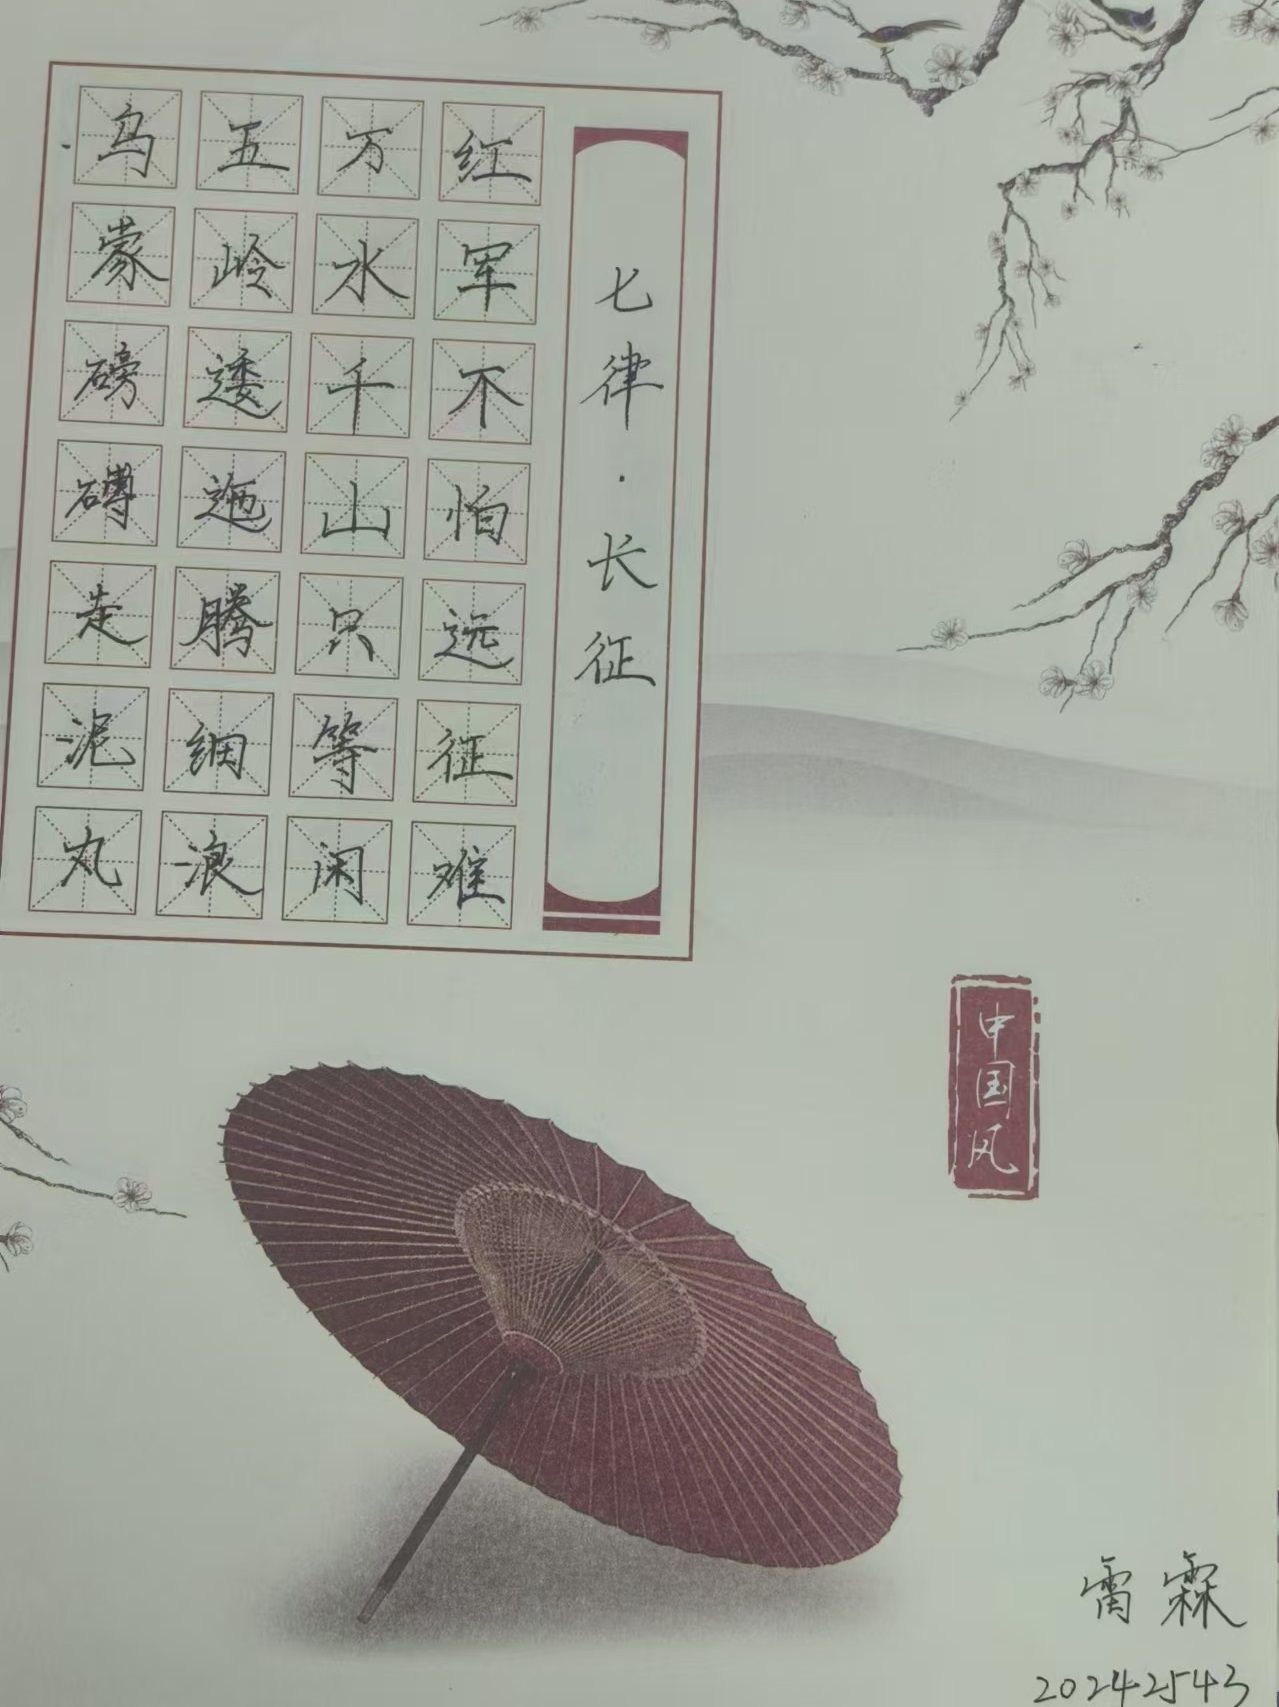 七律·长征
红军不怕远征难
万水千山只等闲
五岭逶迤腾细浪
乌蒙磅礴走泥丸
中国风
霖
20242543